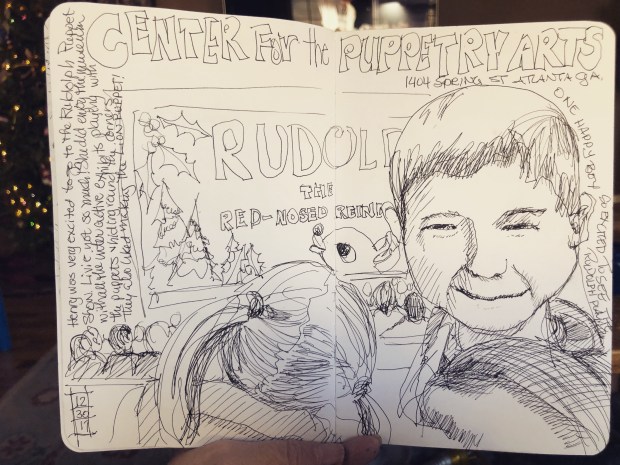 CENTER FOR the PUPPETRY ARTS
1404 SPRING ST ATLANTA GA.
Henry was very excited to go to the Rudolph Puppet
Show. Livie not so much! She did enjoy the museum
with all the interactive exhibits playing with
the puppets which
They also liked making the
PUPPET!
RUDOLP
THE
RED-NOSED REIN
ONE HAPPY BOY!
So EXCITED TO SEE THE
RUDOLPH
12
30
17